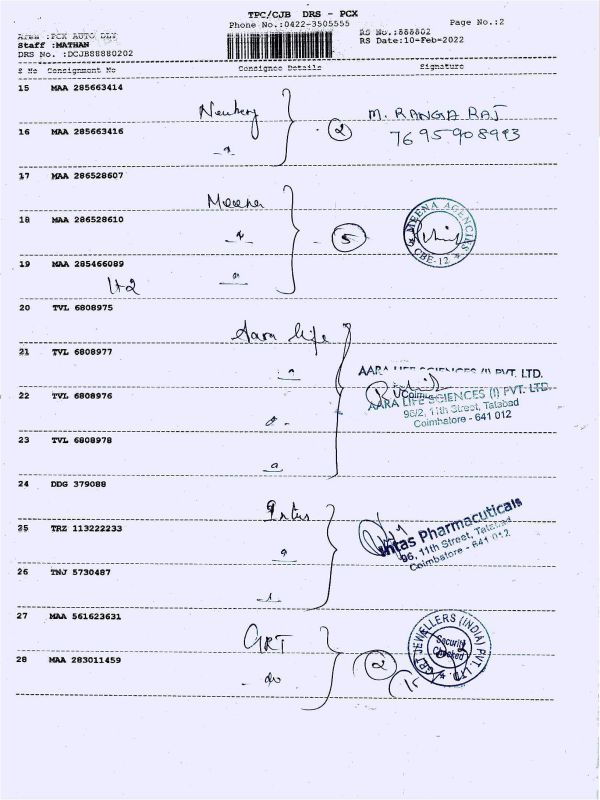 TPC/CJB DRS - PCX
Phone No.:0422-3505555
Page No.:2
Area :PCX AUTO DLY
RS No.:888802
Staff :MATHAN
RS Date:10-Feb-2022
DRS No. :DCJB88880202
S No Consignment No Consignee Details Signature
15 MAA 285663414
Newberg
M. RANGA RAJ
16 MAA 285663416
2
7695908993
17 MAA 286528607
Meena
18 MAA 286528610
5
MEENA AGENCIES
CBE-12
19 MAA 285466089
1+2
20 TVL 6808975
Aara life
21 TVL 6808977
AARA LIFE SCIENCES (I) PVT. LTD.
22 TVL 6808976
AARA LIFE SCIENCES (I) PVT. LTD.
96/2, 11th Street, Tatabad
Coimbatore - 641 012
23 TVL 6808978
24 DDG 379088
Intas
25 TRZ 113222233
Intas Pharmacuticals
96, 11th Street, Tatabad
Coimbatore - 641 012
26 TNJ 5730487
27 MAA 561623631
GRT
GRT JEWELLERS (INDIA) PVT. LTD.
Security
Checked
28 MAA 283011459
do
2